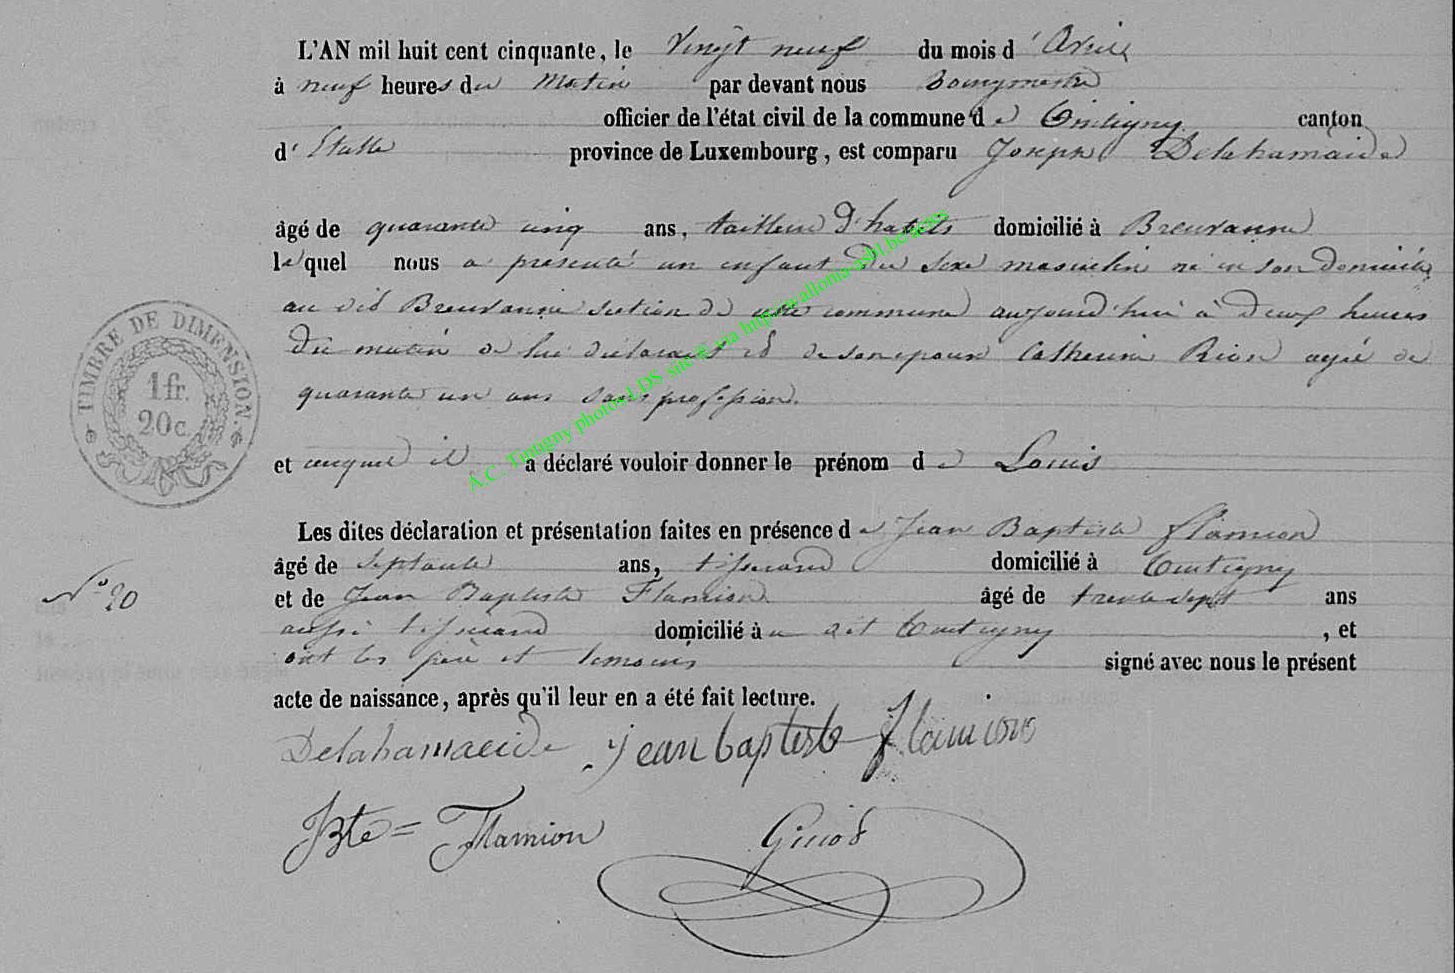 L'AN mil huit cent cinquante, le Vingt neuf du mois d'Avril
à neuf heures du Matin par devant nous Bourgmestre
officier de l'état civil de la commune de Tintigny canton
d'Etalle province de Luxembourg, est comparu Joseph Delahamaide
âgé de quarante cinq ans, tailleur d'habits domicilié à Breuvanne
lequel nous a présenté un enfant du sexe masculin né en son domicile
au dit Breuvanne section de cette commune aujourd'hui à deux heures
du matin de lui déclarant et de son epouse Catherine Rion agée de
quarante un ans sans profession.
et auquel il a déclaré vouloir donner le prénom de Louis
Les dites déclaration et présentation faites en présence de Jean Baptiste flamion
âgé de septante ans, tisserand domicilié à Tintigny
et de Jean Baptiste Flamion âgé de trente sept ans
aussi tisserand domicilié au dit Tintigny, et
ont les père et temoins signé avec nous le présent
acte de naissance, après qu'il leur en a été fait lecture.
Delahamaide jean baptiste flamion
JBte = Flamion
N° 20
TIMBRE DE DIMENSION.
1 fr.
20 c.
A.C. Tintigny photos LDS site © via http://wallonia-asbl.be/actes